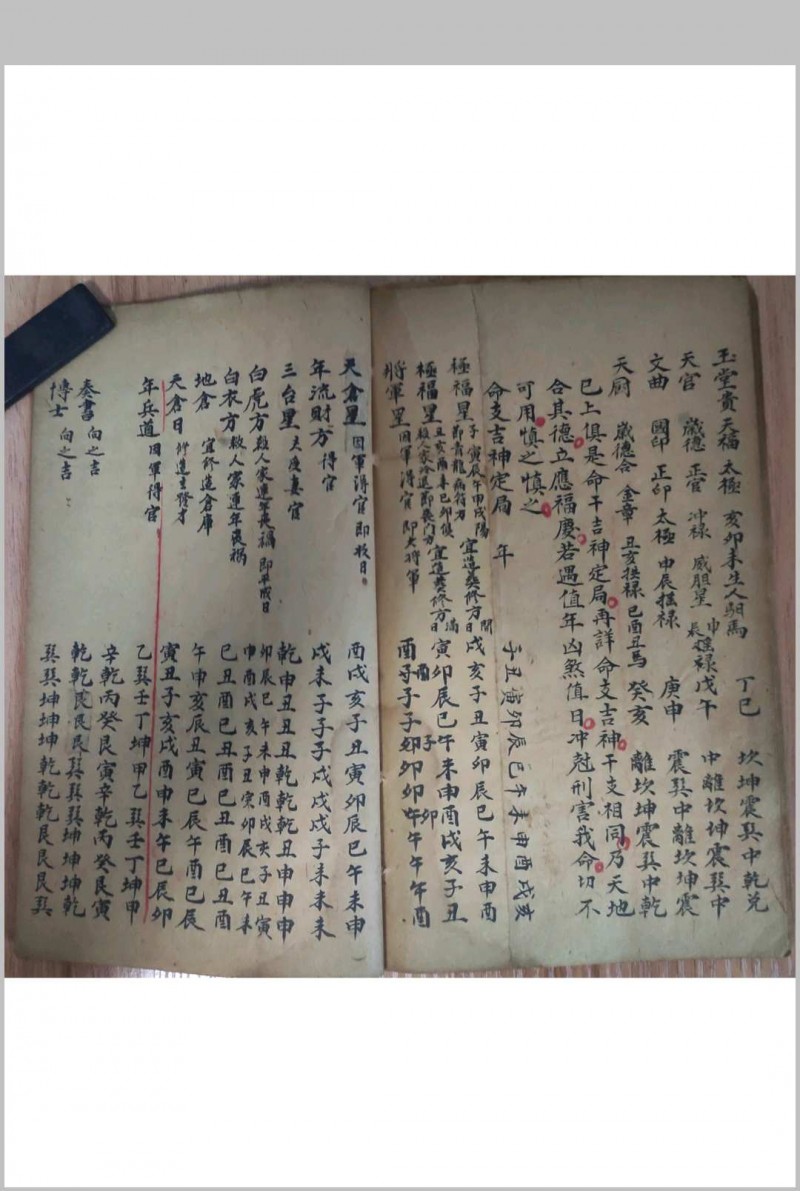 玉堂貴 天福 太極 亥卯未生人馹馬 丁巳 坎坤震巽中乾兌
天官 歲德 正官 沖祿 威胆星 申辰搖祿 戊午 中離坎坤震巽中
文曲 國印 正印 太極 申辰搖祿 庚申 震巽中離坎坤震
天厨 歲德合 金章 丑亥拱祿 巳酉丑馬 癸亥 離坎坤震巽中乾
已上俱是命干吉神定局再詳命支吉神干支相同乃天地
合其德立應福慶若遇值年凶煞值日冲尅刑害我命切不
可用慎之慎之
命支吉神定局 年 子丑寅卯辰巳午未申酉戌亥
極福星 子寅辰午申戌陽 即青龍病符方 宜造葬修方 開日 戌亥子丑寅卯辰巳午未申酉
極福星 丑亥酉未巳卯 殺人家冷退即喪门方 宜造葬修方 滿日 寅卯辰巳午未申酉戌亥子丑
將軍星 因軍得官 即大將軍 酉酉子子子卯卯卯午午午酉
天倉星 因軍得官 即收日 酉戌亥子丑寅卯辰巳午未申
年流財方 得官 戌未子子子戌戌戌子未未未
三台星 夫及妻官 乾申丑丑丑乾乾乾丑申申申
白虎方 殺人家連年喪禍 即平成日 申酉戌亥子丑寅卯辰巳午未
白衣方 殺人家連年喪禍 巳丑酉巳丑酉巳丑酉巳丑酉
地倉 宜修造倉庫 午申亥辰丑寅巳辰午酉巳辰
天倉日 修造主發才 寅丑子亥戌酉申未午巳辰卯
年兵道 因軍得官 乙巽壬丁坤甲乙巽壬丁坤甲
辛乾丙癸艮寅辛乾丙癸艮寅
奏書 向之吉 乾乾艮艮艮巽巽巽坤坤坤乾
博士 向之吉 巽巽坤坤坤乾乾乾艮艮艮巽